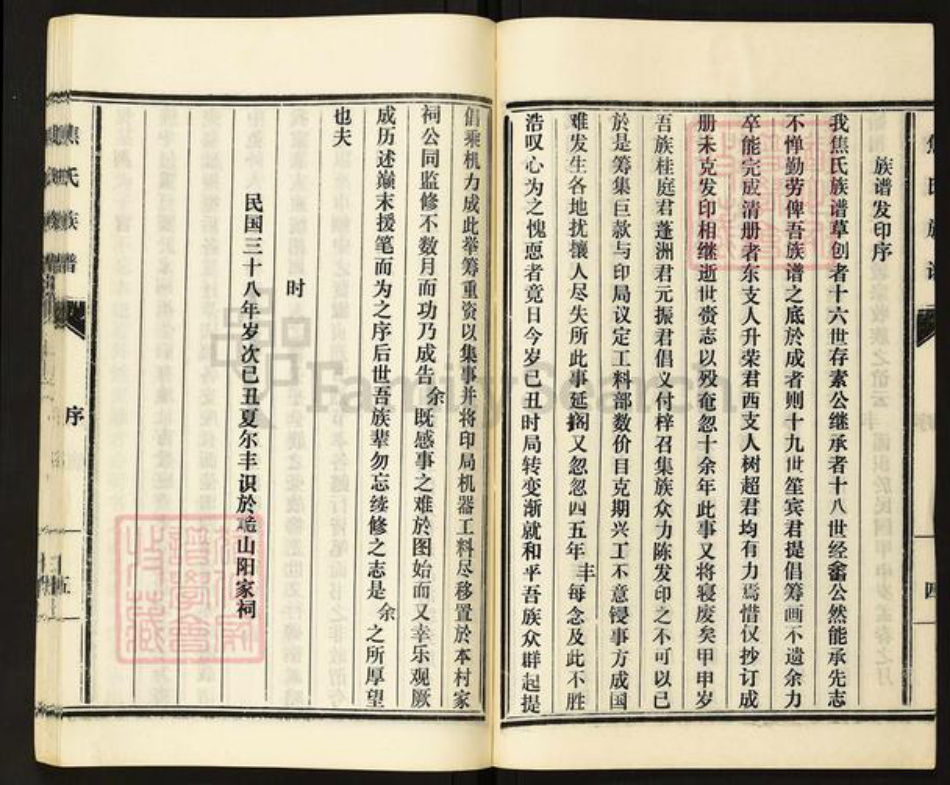 族谱发印序
我焦氏族谱草创者十六世存素公继承者十八世经畬公然能承先志
不惮勤劳俾吾族谱之底於成者则十九世笙宾君提倡筹画不遗余力
卒能完成清册者东支人升荣君西支人树超君均有力焉惜仅抄订成
册未克发印相继逝世赍志以殁奄忽十余年此事又将寝废矣甲申岁
吾族桂庭君蓬洲君元振君倡义付梓召集族众力陈发印之不可以已
於是筹集巨款与印局议定工料部数价目克期兴工不意锓事方成国
难发生各地扰攘人尽失所此事延搁又忽忽四五年丰每念及此不胜
浩叹心为之愧恧者竟日今岁己丑时局转变渐就和平吾族众群起提
倡乘机力成此举筹重资以集事并将印局机器工料尽移置於本村家
祠公同监修不数月而功乃成告余既感事之难於图始而又幸乐观厥
成历述巅末援笔而为之序后世吾族辈勿忘续修之志是余之所厚望
也夫
时
民国三十八年岁次己丑夏尔丰识於山阳家祠
焦氏族谱
序
五
焦氏族谱
四
FamilySearch